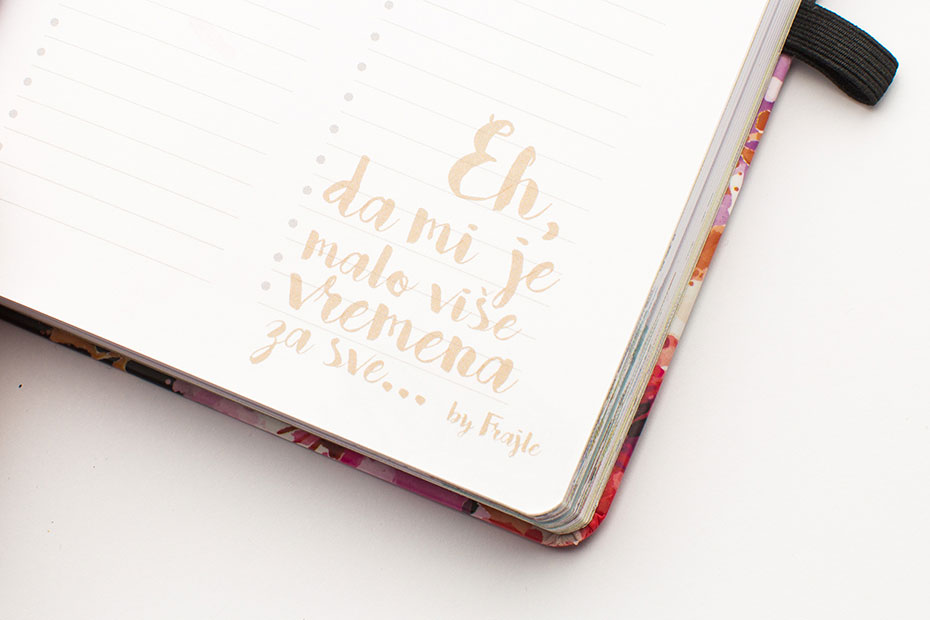 Eh,
da mi je
malo više
vremena
za sve...
by Frajle